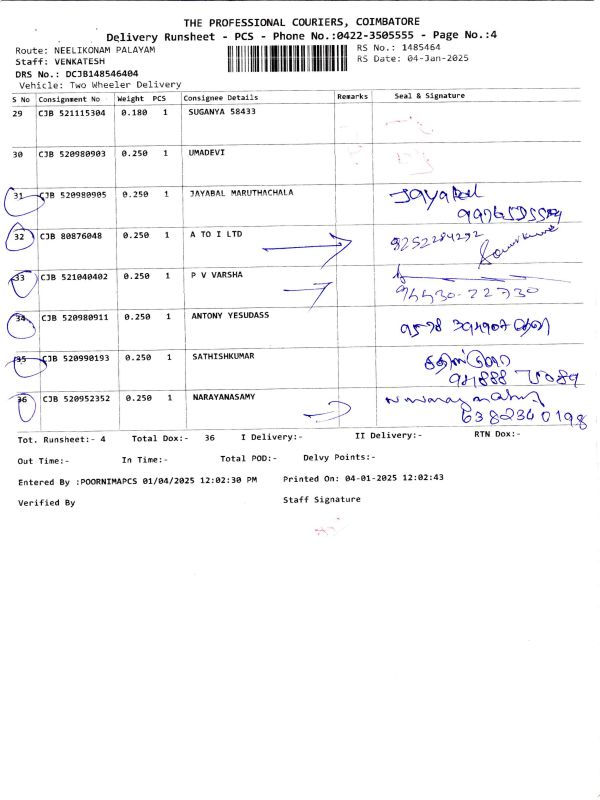 THE PROFESSIONAL COURIERS, COIMBATORE
Delivery Runsheet - PCS - Phone No.:0422-3505555 - Page No.:4
Route: NEELIKONAM PALAYAM
RS No.: 1485464
Staff: VENKATESH
RS Date: 04-Jan-2025
DRS No.: DCJB148546404
Vehicle: Two Wheeler Delivery
S No Consignment No Weight PCS Consignee Details Remarks Seal & Signature
29 CJB 521115304 0.180 1 SUGANYA 58433
30 CJB 520980903 0.250 1 UMADEVI
31 CJB 520980905 0.250 1 JAYABAL MARUTHACHALA Jayabal
32 CJB 80876048 0.250 1 A TO I LTD 9252284292
33 CJB 521040402 0.250 1 P V VARSHA
94430-22730
34 CJB 520980911 0.250 1 ANTONY YESUDASS
35 CJB 520990193 0.250 1 SATHISHKUMAR
36 CJB 520952352 0.250 1 NARAYANASAMY
6382340198
Tot. Runsheet:- 4 Total Dox:- 36 I Delivery:- II Delivery:- RTN Dox:-
Out Time:- In Time:- Total POD:- Delvy Points:-
Entered By :POORNIMAPCS 01/04/2025 12:02:30 PM Printed On: 04-01-2025 12:02:43
Verified By Staff Signature